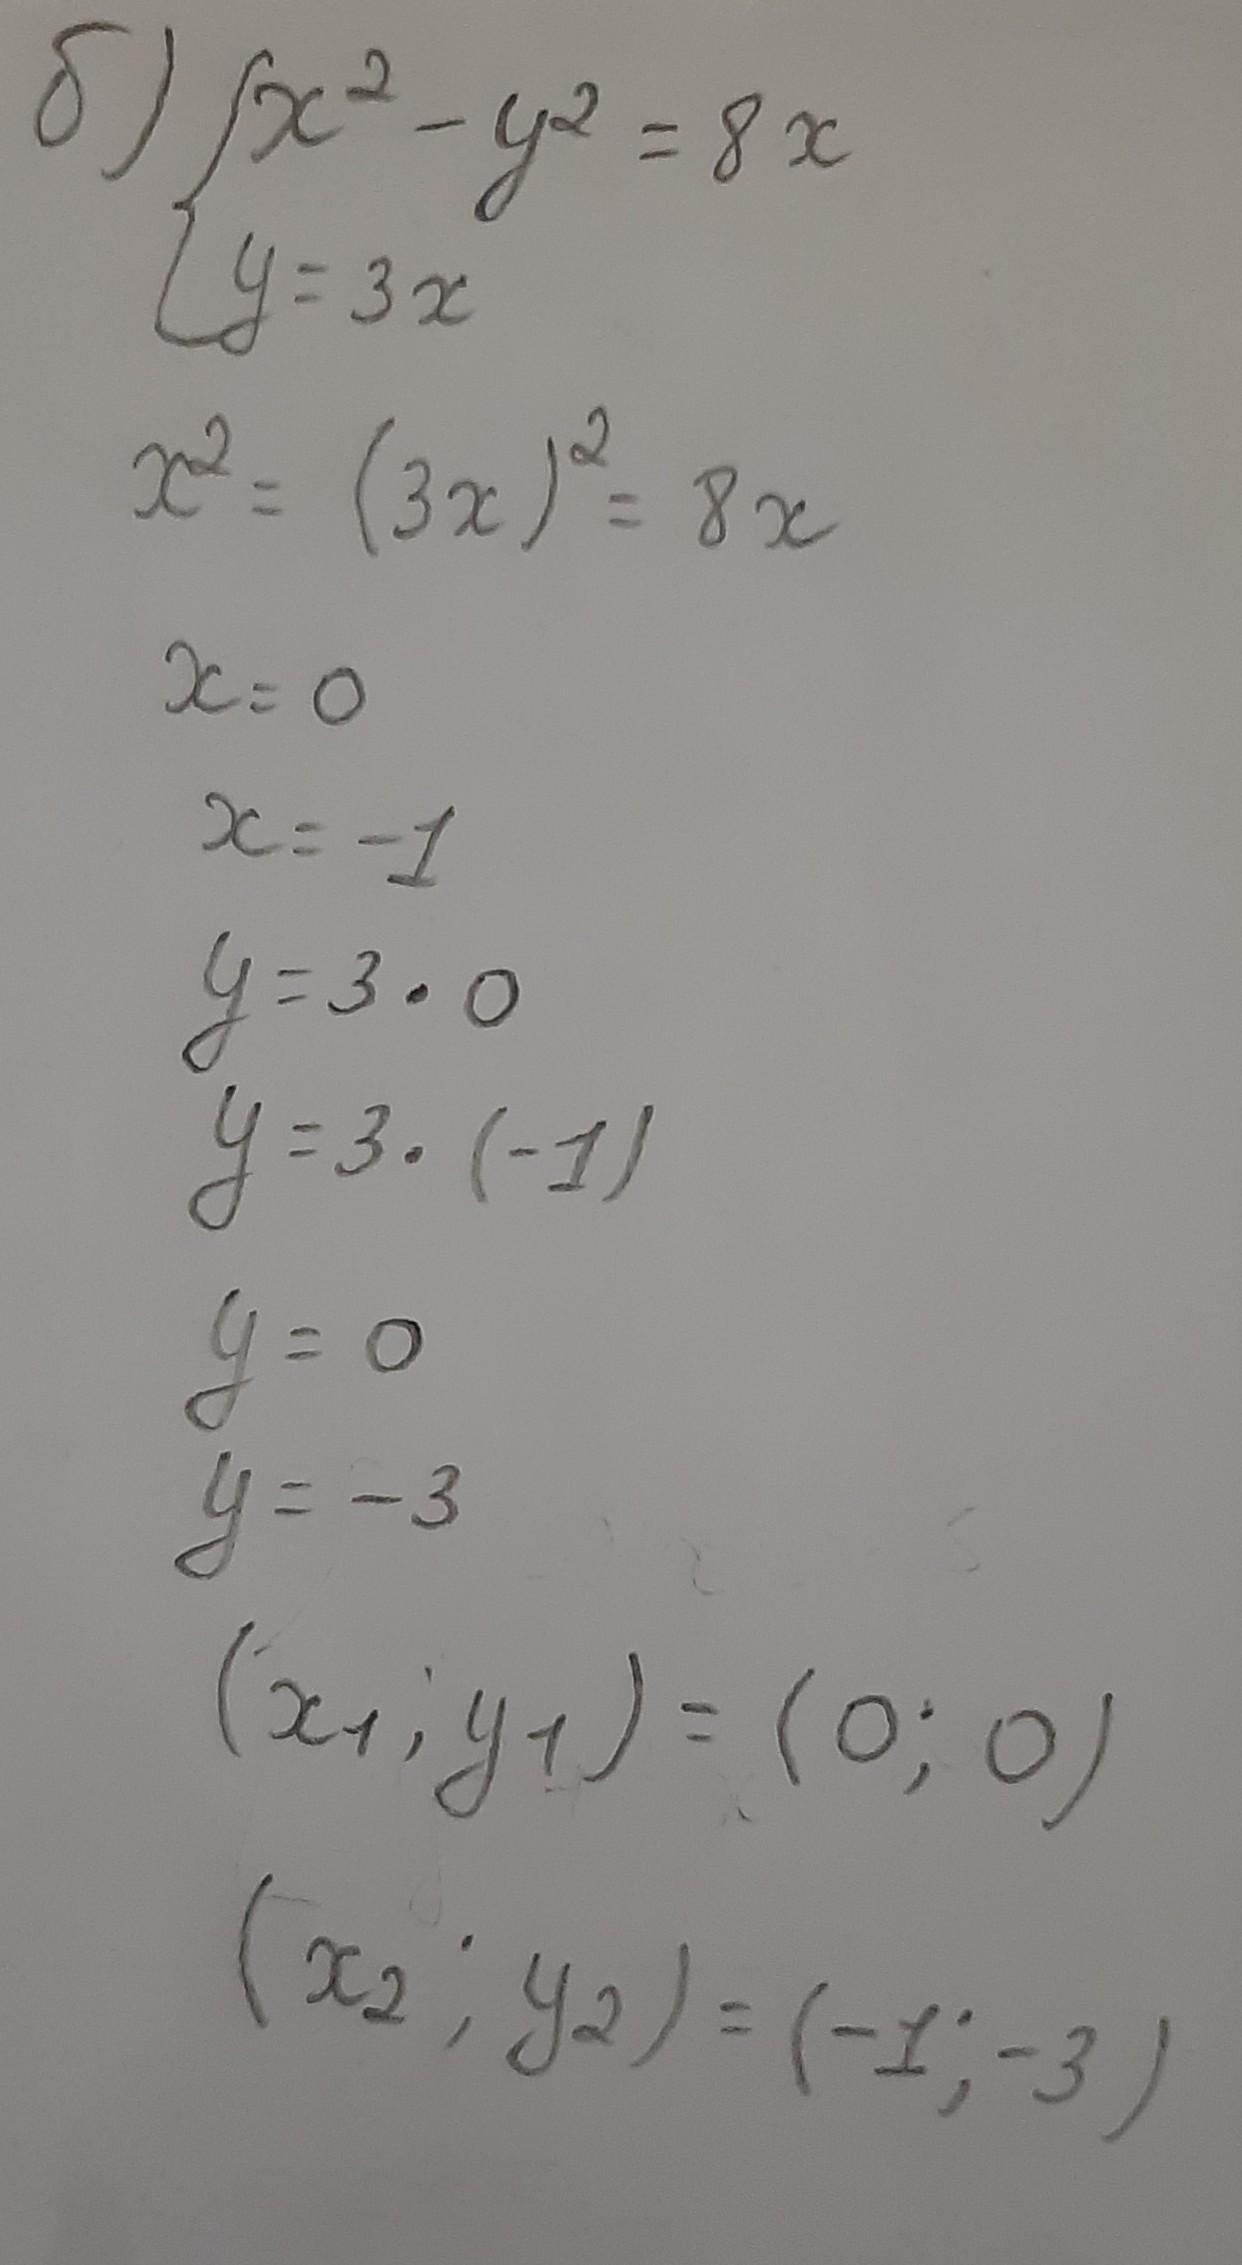 б) { x² - y² = 8x
y = 3x
x² = (3x)² = 8x
x = 0
x = -1
y = 3 · 0
y = 3 · (-1)
y = 0
y = -3
(x₁; y₁) = (0; 0)
(x₂; y₂) = (-1; -3)